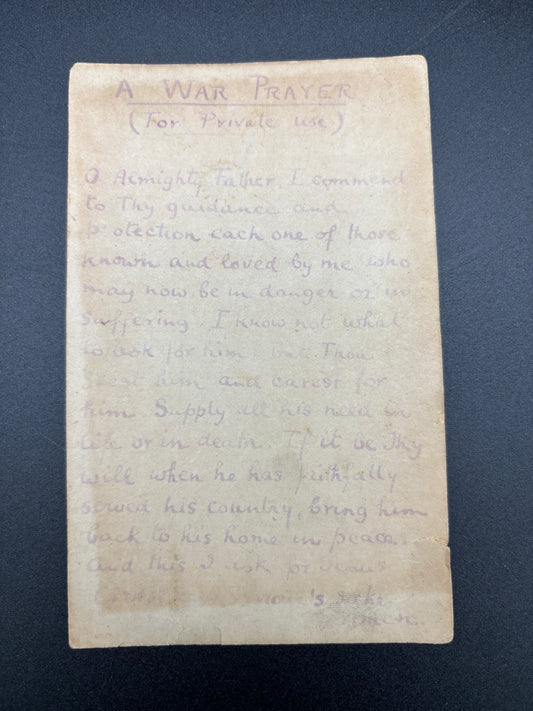 A WAR PRAYER
(For Private use)
O Almighty Father, I commend
to Thy guidance and
protection each one of those
known and loved by me who
may now be in danger or in
suffering. I know not what
to ask for him, but Thou
seest him and carest for
him. Supply all his need in
life or in death. If it be Thy
will when he has faithfully
served his country, bring him
back to his home in peace.
And this I ask for Jesus
's sake
Amen.